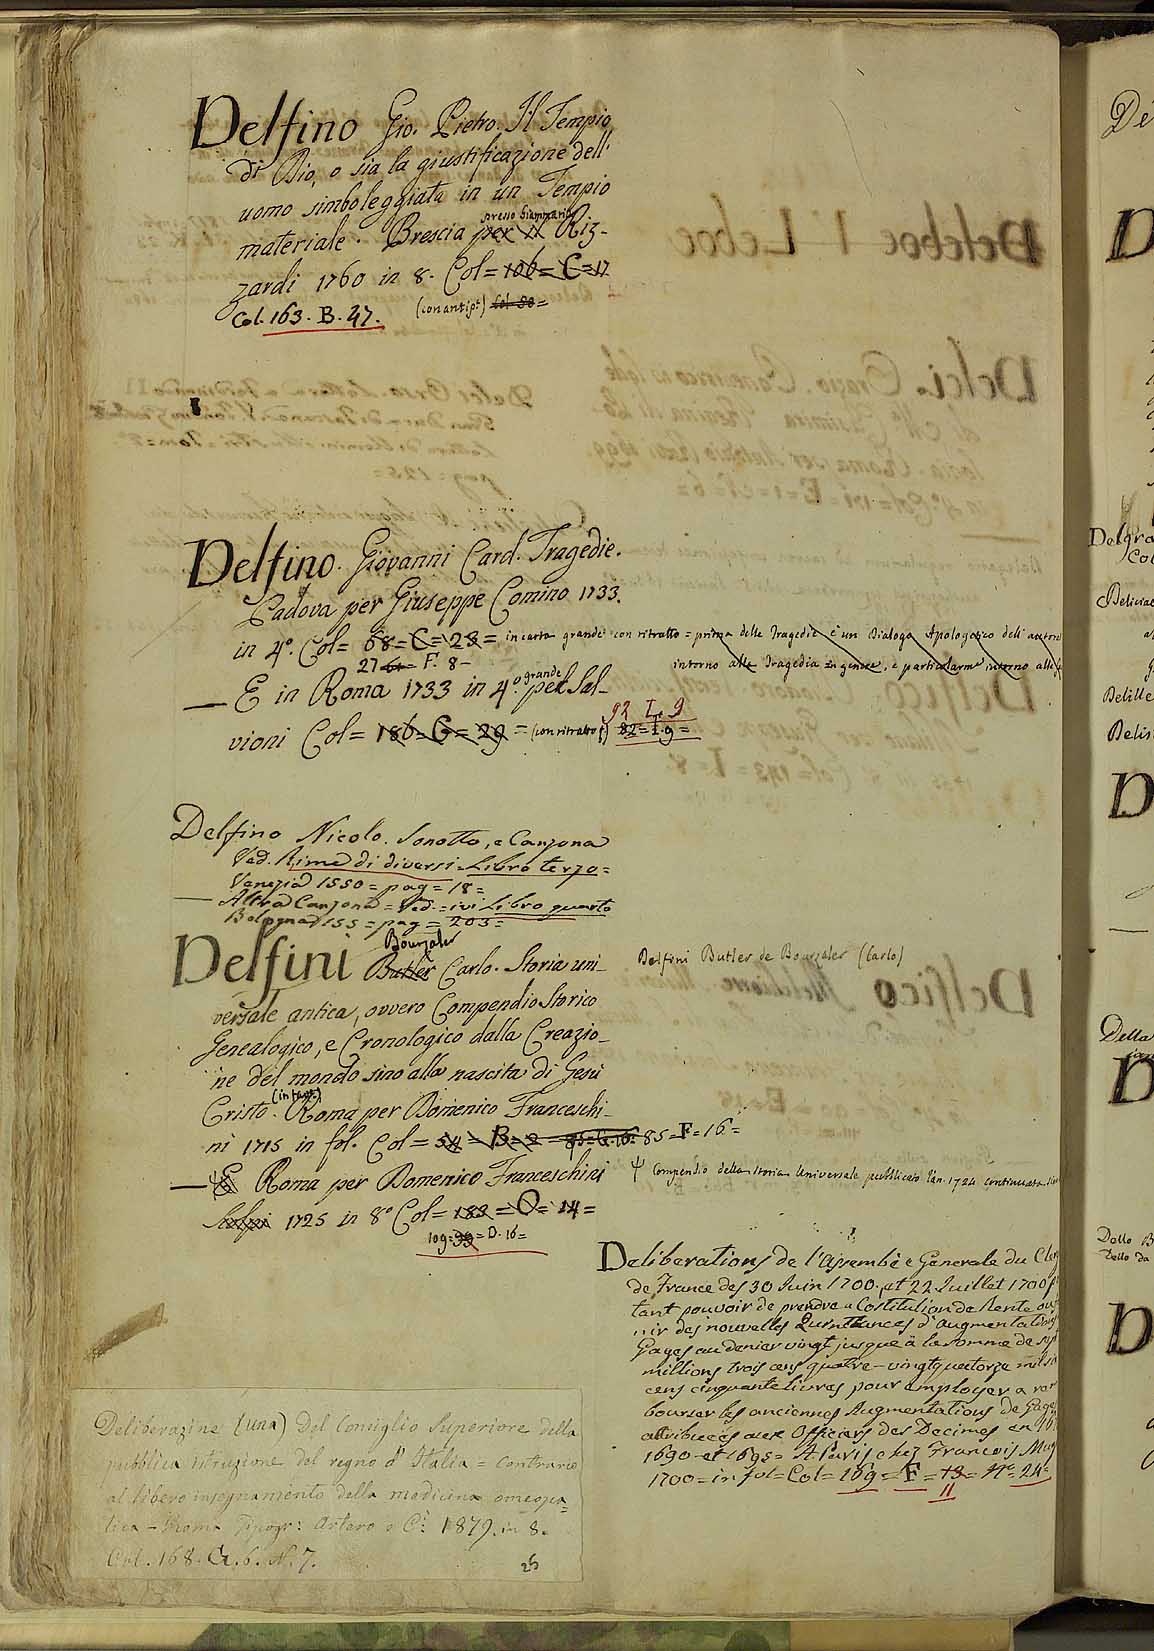 Delfino Gio. Pietro. Il Tempio
di Dio, o sia la giustificazione dell'
uomo simboleggiata in un Tempio
presso Giammaria
materiale. Brescia per il Riz-
zardi 1760 in 8. Col = 106 = C = 17
(con antip.) Col. 98 =
Col. 163. B. 47.
Delfino. Giovanni Card. Tragedie.
Padova per Giuseppe Comino 1733.
in 4°. Col = 68 = C = 28 = in carta grande con ritratto = prima delle Tragedie è un Dialogo Apologetico dell' autore
intorno alla Tragedia in genere, e particolarme intorno alle
27 61 = F. 8 -
grande
— E in Roma 1733 in 4°. pel Sal-
vioni Col = 186 = G = 29 = (con ritratto) 82 = I. 9 =
92 I. 9
Delfino Nicolo. Sonetto, e Canzona
Ved. Rime di diversi = Libro terzo =
Venezia 1550 = pag = 18 =
— Altra Canzona = Ved. = ivi Libro quarto
Bologna 155 = pag = 203 =
Bourzaler
Delfini Butler Carlo. Storia uni-
versale antica, ovvero Compendio Storico
Genealogico, e Cronologico dalla Creazio-
ne del mondo sino alla nascita di Gesù
Cristo. Roma per Domenico Franceschi-
ni 1715 in fol. Col = 54 = B = 2 = 85 = G. 16 = 85 = F = 16 =
— E Roma per Domenico Franceschini
1725 in 8° Col = 183 = O = 14 =
109 = 39 = D. 16 =
Delfini Butler de Bourzaler (Carlo)
Ψ Compendio della Storia Universale pubblicato l'an. 1724 continuata
Deliberations de l'Assemblée Generale du Cler
de France des 30 Juin 1700. et 22 Juillet 1700
tant pouvoir de prendre a Costitution de Rente ou
nir des nouvelles Quittances d'augmentations
Gages au denier vingt jusque à la somme de sep
millions trois cens quatre-vingt quatorze mil
cens cinquante livres pour employer a rem
bourser les anciennes Augmentations de Gages
attribuées aux Officiers des Decimes en 16
1690 et 1695 = A Paris chez Francois Mug
1700 = in fol = Col = 169 = F = 13 = N° 24 =
11
Deliberazine (una) Del Consiglio Superiore della
pubblica istruzione del regno d'Italia = Contraria
al libero insegnamento della medicina omeopa=
tica - Roma Tipogr: Artero e C: 1879. in 8.
Col. 168. G. 6. N. 7.
26